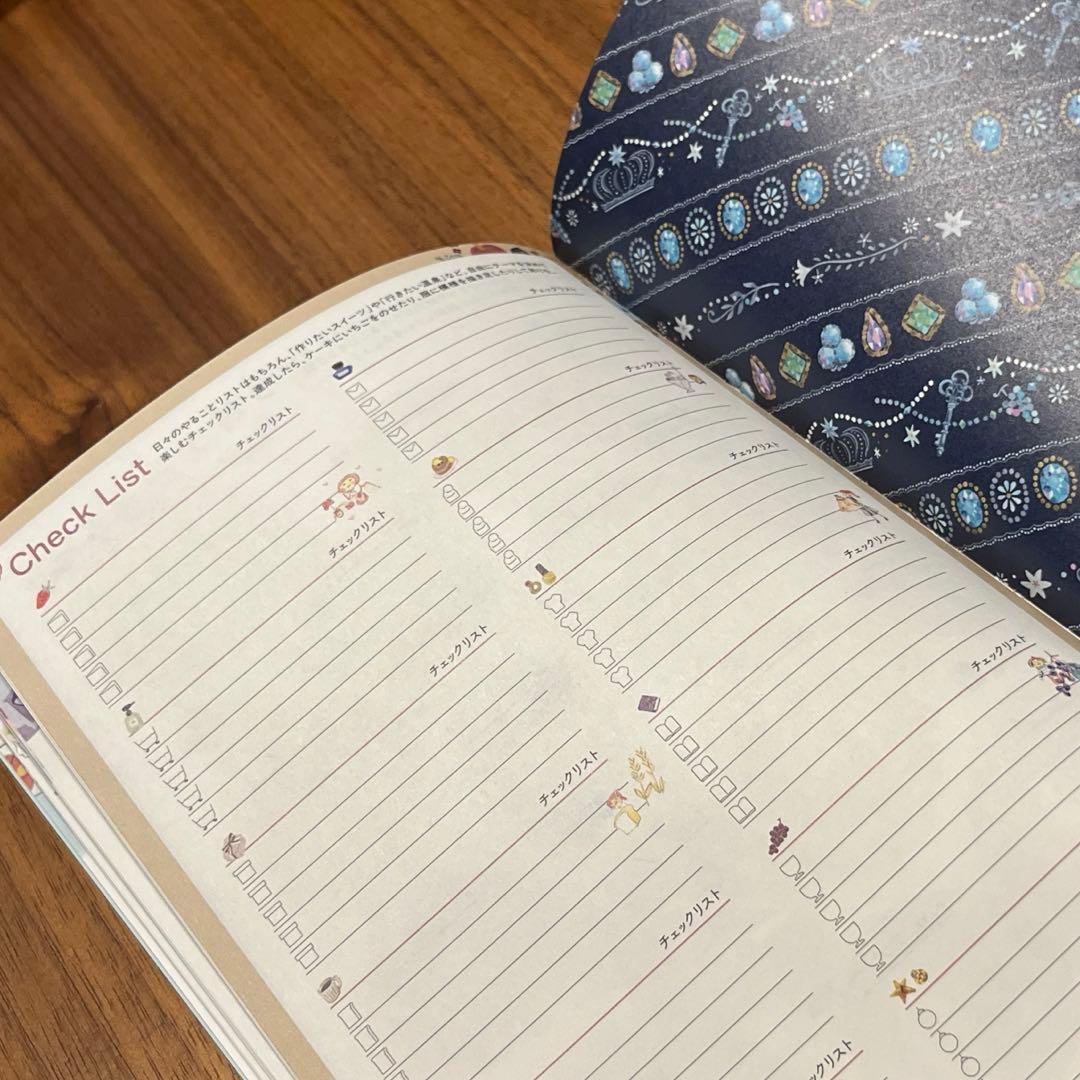 Check List
日々のやることリストはもちろん、「作りたいスイーツ」や「行きたい温泉」など、自由にテーマを決めて
楽しむチェックリスト。達成したら、ケーキにいちごをのせたり、服に模様を描き足したりして
チェックリスト
チェックリスト
チェックリスト
チェックリスト
チェックリスト
チェックリスト
チェックリスト
チェックリスト
チェックリスト
チェックリスト
チェックリスト